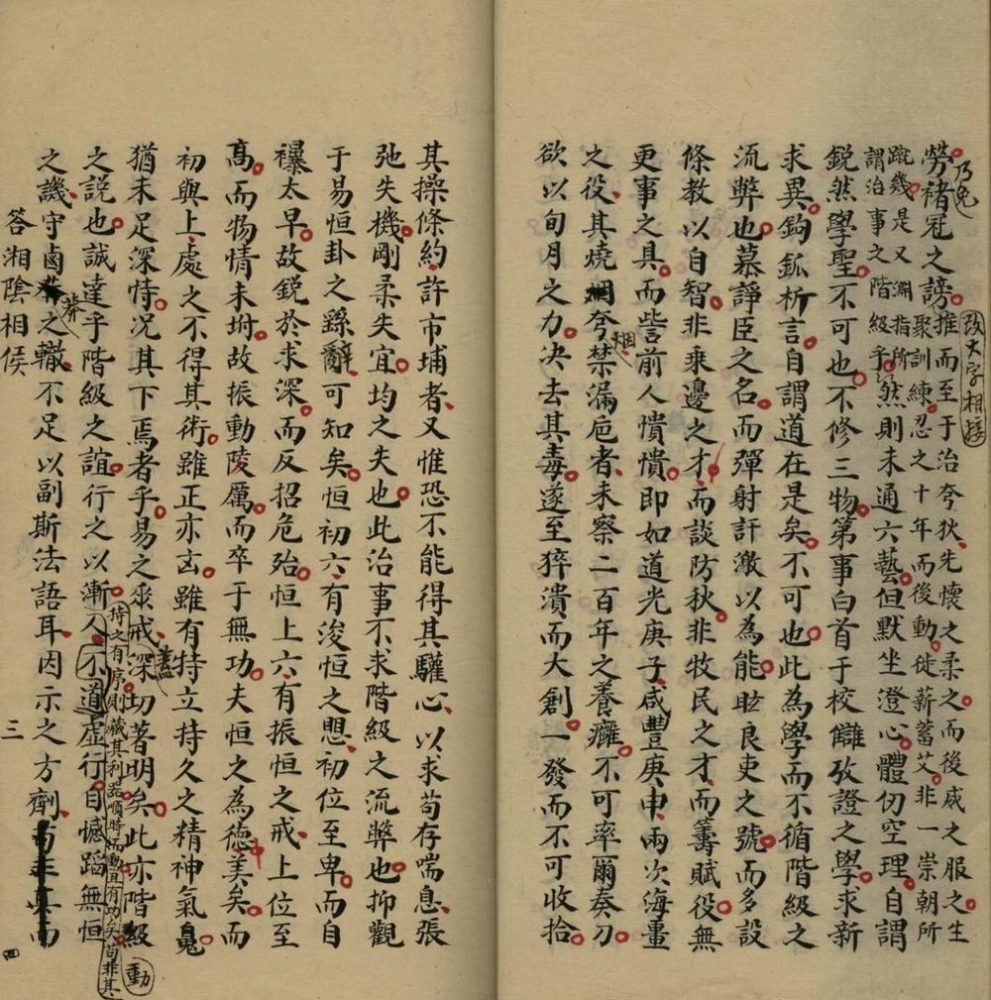 勞褚冠之謗
乃免
推而至于治夸狄先懷之柔之而後威之服之生
聚訓練忍之十年而後動徙薪蓄艾非一崇朝所
改大字相接
蹴幾是又淵指所
謂治事之階級乎
然則未通六藝但默坐澄心體仞空理自謂
銳然學聖不可也不修三物第事白首于校讎攷證之學求新
求異鉤鈲析言自謂道在是矣不可也此為學而不循階級之
流弊也慕諍臣之名而彈射訐激以為能眩良吏之號而多設
條教以自智非乘邊之才而談防秋非牧民之才而籌賦役無
更事之具而訾前人憒憒即如道光庚子咸豐庚申兩次海畺
之役其燒烟夸禁漏巵者未察二百年之養癰不可率爾奏刀
欲以旬月之力決去其毒遂至猝潰而大創一發而不可收拾
其操條約許市埔者又惟恐不能得其驩心以求苟存喘息張
弛失機剛柔失宜均之失也此治事不求階級之流弊也抑觀
于易恒卦之繇辭可知矣恒初六有浚恒之恖初位至卑而自
襮太早故銳於求深而反招危殆恒上六有振恒之戒上位至
高而物情未坿故振動陵厲而卒于無功夫恒之為德美矣而
初與上處之不得其術雖正亦凶雖有持立持久之精神氣鬼
猶未足深恃况其下焉者乎易之垂戒深切著明矣此亦階級
蓋
動
之說也誠達乎階級之誼行之以漸人不道虛行自憾蹈無恒
持之有序則藏其利器順時而動宜有功矣苟非其
之譏守鹵莽之轍不足以副斯法語耳因示之方劑苟非真而
答湘陰相侯
三
四